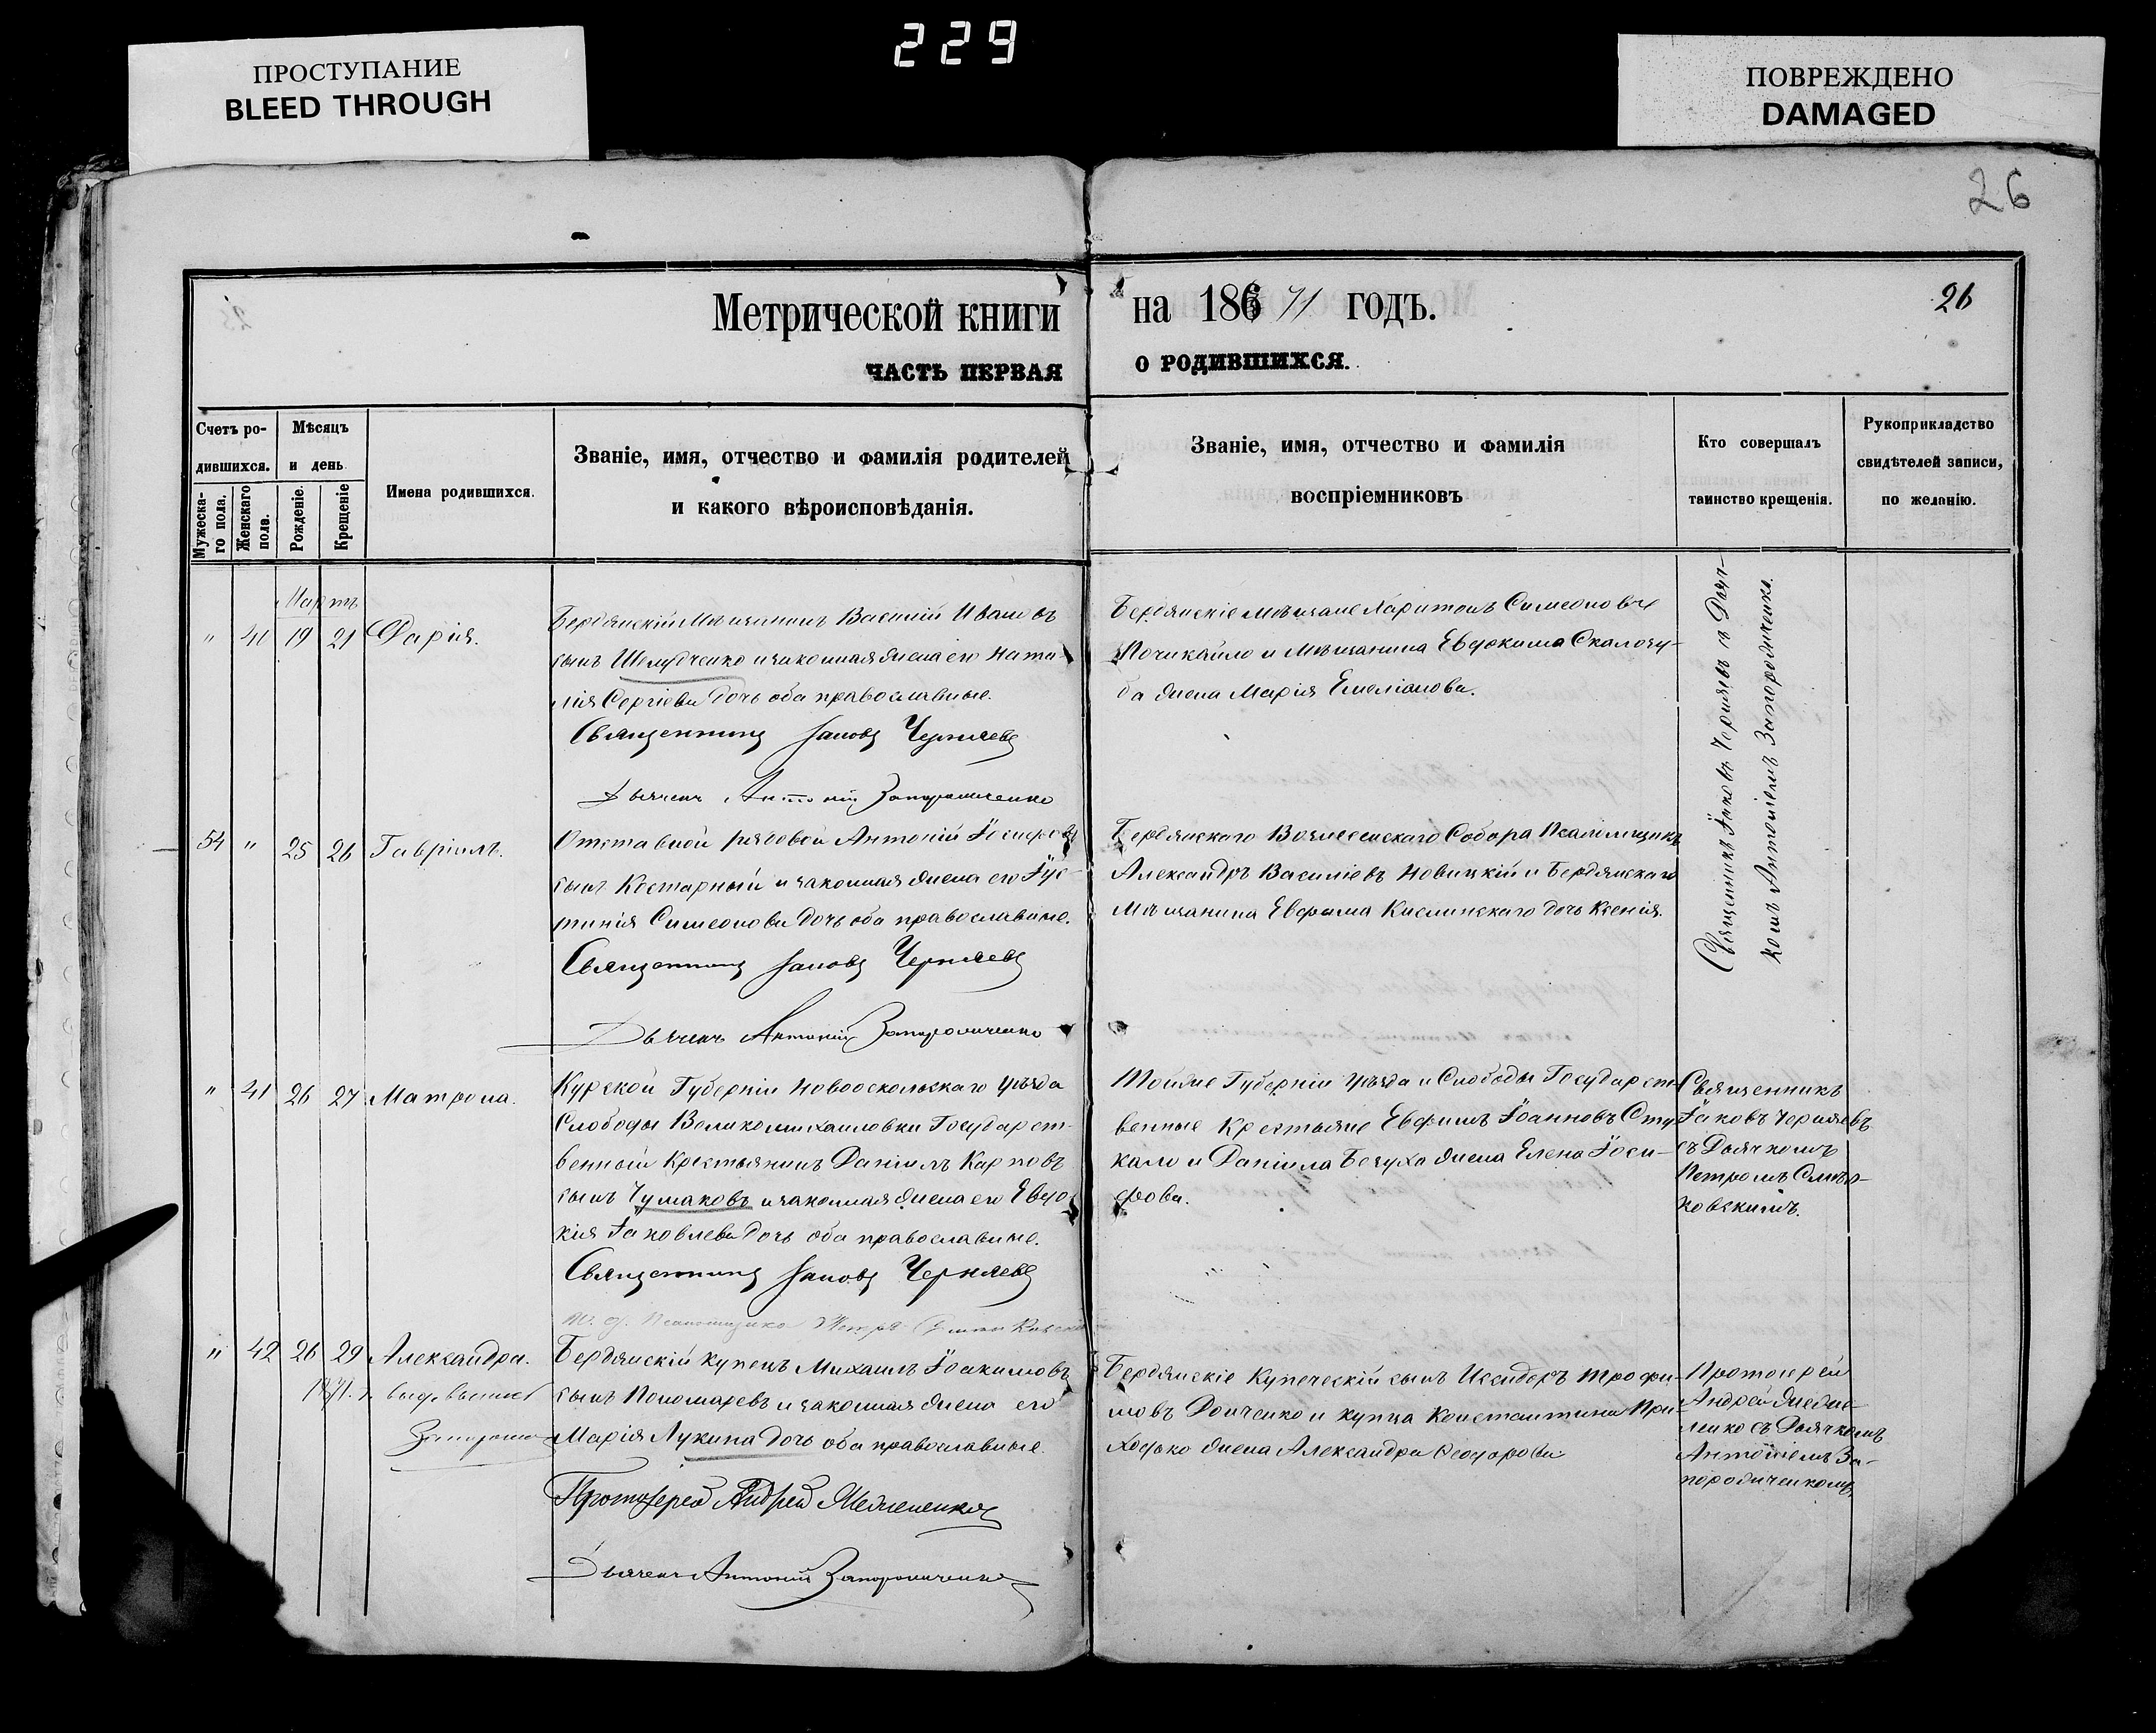 229
ПРОСТУПАНИЕ
BLEED THROUGH
ПОВРЕЖДЕНО
DAMAGED
26
Метрической книги на 186 71 годъ.
26
ЧАСТЬ ПЕРВАЯ О РОДИВШИХСЯ.
Счетъ ро-
дившихся.
Мужеска-
го пола.
Женскаго
пола.
Мѣсяцъ
и день
Рожденіе.
Крещеніе
Имена родившихся.
Званіе, имя, отчество и фамилія родителей
и какого вѣроисповѣданія.
Званіе, имя, отчество и фамилія
воспріемниковъ
Кто совершалъ
таинство крещенія.
Рукоприкладство
свидѣтелей записи,
по желанію.
Мартъ
" 40 19 21 Дарія.
Бердянскій Мѣщанинъ Василій Ивановъ
сынъ Шелудченко и законная жена его Ната-
лія Сергіева дочь оба православные.
Священникъ Іаковъ Черняевъ
Дьячекъ Антоній Запорожченко
Бердянскіе мѣщане Харитонъ Симеоновъ
Почикайло и Мѣщанина Евдокима Скалозу-
ба жена Марія Емеліанова.
Священникъ Іаковъ Черняевъ съ Дьяч-
комъ Антоніемъ Запорожченко.
54 " 25 26 Гавріилъ.
Отставной рядовой Антоній Іосифовъ
сынъ Костарный и законная жена его Іус-
тинія Симеонова дочь оба православные.
Священникъ Іаковъ Черняевъ
Дьячекъ Антоній Запорожченко
Бердянскаго Вознесенскаго Собора Псаломщикъ
Александръ Василіевъ Новицкій и Бердянскаго
Мѣщанина Евфима Кислинскаго дочь Ксенія.
" 41 26 27 Матрона.
Курской Губерніи Новооскольскаго уѣзда
Слободы Великомихаиловки Государст-
венный Крестьянинъ Даніилъ Карповъ
сынъ Чумаковъ и законная жена его Евдо-
кія Іаковлева дочь оба православные.
Священникъ Іаковъ Черняевъ
Псаломщика Петръ
Тойже Губерніи уѣзда и Слободы Государст-
венные Крестьяне Евфимъ Іоанновъ Сту-
кало и Даніила Безуха жена Елена Іоси-
фова.
Священникъ
Іаковъ Черняевъ
съ Дьячкомъ
Петромъ
ковскимъ.
" 42 26 29 Александра.
1871. г.
Бердянскій купецъ Михаилъ Іоакимовъ
сынъ Пономаревъ и законная жена его
Марія Лукина дочь оба православные.
Протоіерей Андрей
Дьячекъ Антоній Запорожченко
Бердянскіе Купеческій сынъ Исидоръ Трофи-
мовъ Донченко и купца Константина При-
ходько жена Александра Ѳеодорова
Протоіерей
Андрей
съ Дьячкомъ
Антоніемъ За-
порожченкомъ